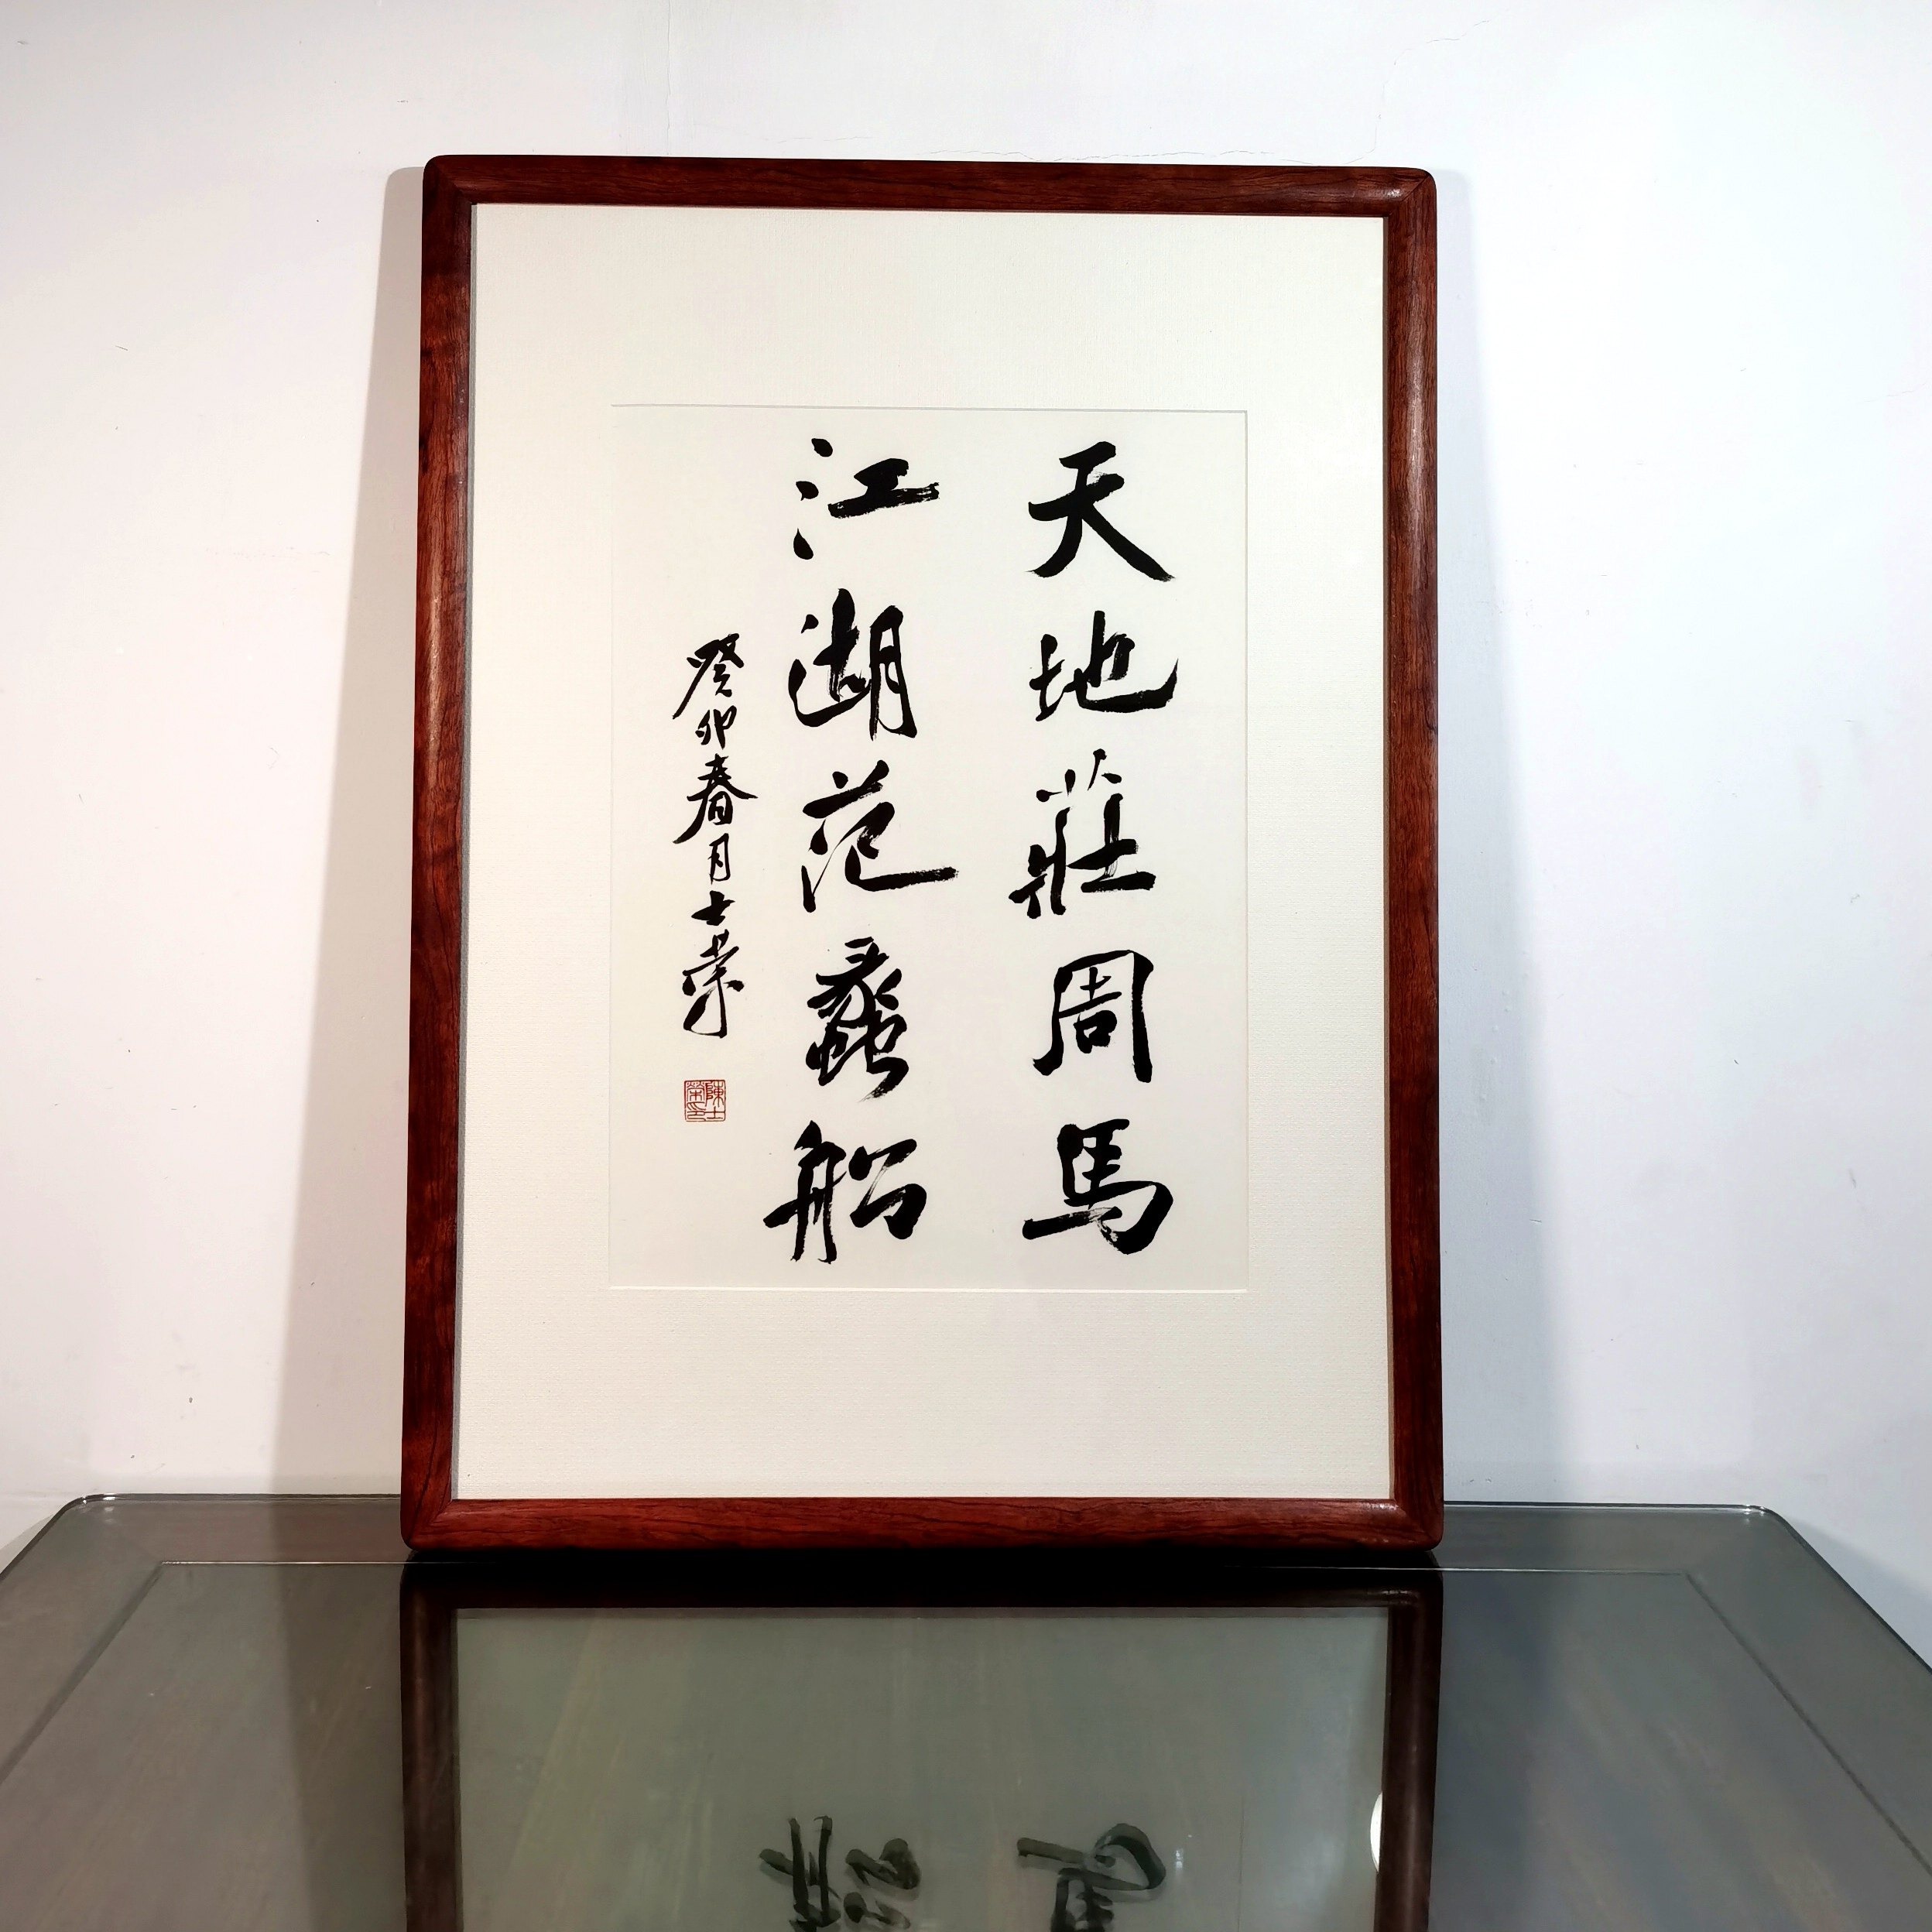 天地莊周馬
江湖范蠡船
癸卯春月士榮
陳士榮印